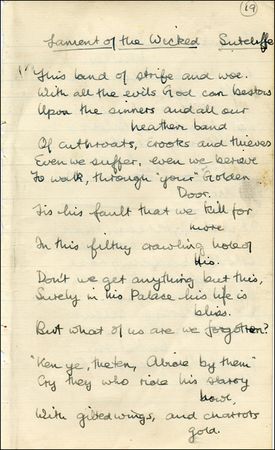 19
Lament of the Wicked Sutcliffe
"This band of strife and woe.
With all the evils God can bestow
Upon the sinners and all our
heathen band
Of cutthroats, crooks and thieves
Even we suffer, even we
To walk, through "your" Golden
Door.
Tis his fault that we kill for
more
In this filthy crawling hole of
his.
Don't we get anything but this,
Surely in his Palace his life is
bliss.
But what of us are we forgotten?
"Ken ye, Abide by them"
Cry they who ride his starry
bowl,
With gilded wings, and charrots
gold.